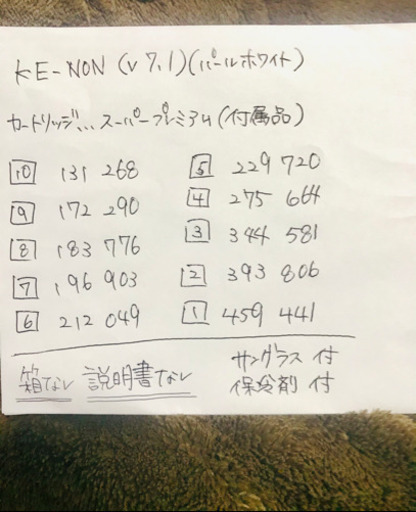 KE-NON (v7.1)(パールホワイト)
カートリッジ...スーパープレミアム(付属品)
10 131 268
9 172 290
8 183 776
7 196 903
6 212 049
5 229 720
4 275 664
3 344 581
2 393 806
1 459 441
箱なし 説明書なし
サングラス 付
保冷剤 付